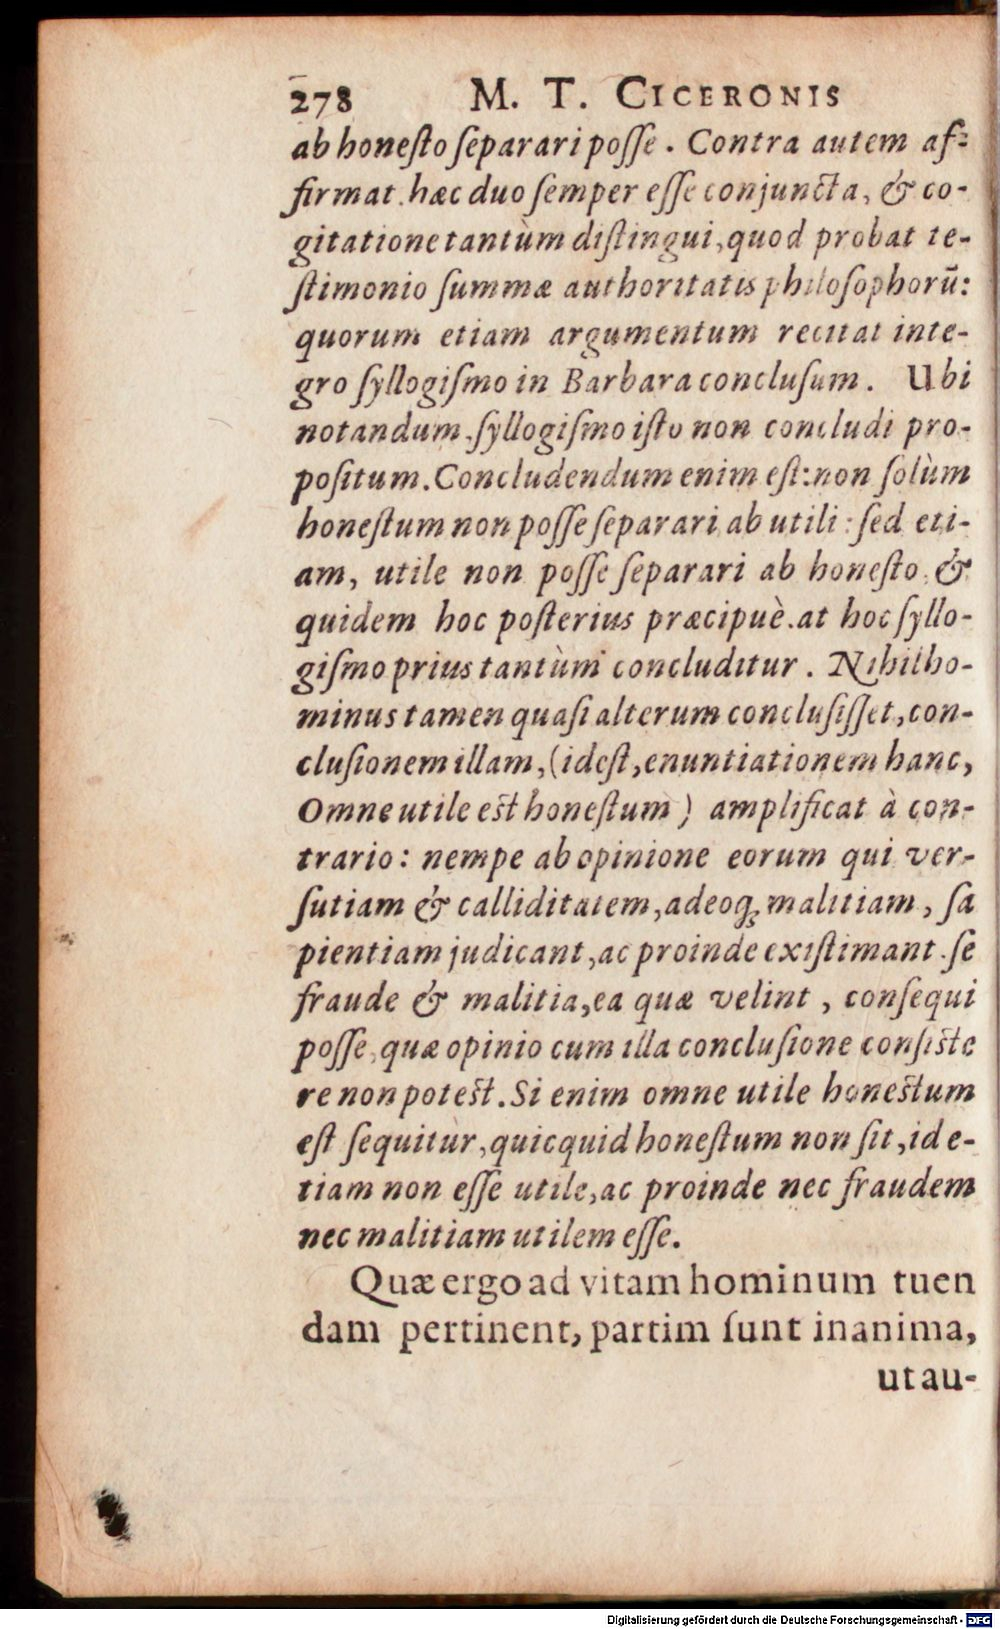 278 M. T. CICERONIS
ab honeſto ſeparari poſſe. Contra autem af-
firmat hæc duo ſemper eſſe conjuncta, & co-
gitatione tantùm diſtingui, quod probat te-
ſtimonio ſummæ authoritatis philoſophorū:
quorum etiam argumentum recitat inte-
gro ſyllogiſmo in Barbara concluſum. Ubi
notandum, ſyllogiſmo iſto non concludi pro-
poſitum. Concludendum enim eſt: non ſolùm
honeſtum non poſſe ſeparari ab utili: ſed eti-
am, utile non poſſe ſeparari ab honeſto, &
quidem hoc poſterius præcipuè. at hoc ſyllo-
giſmo prius tantùm concluditur. Nihilho-
minus tamen quaſi alterum concluſiſſet, con-
cluſionem illam, (id eſt, enuntiationem hanc,
Omne utile est honeſtum) amplificat à con-
trario: nempe ab opinione eorum qui ver-
ſutiam & calliditatem, adeoq; malitiam, ſa
pientiam judicant, ac proinde exiſtimant ſe
fraude & malitia, ea quæ velint, conſequi
poſſe, quæ opinio cum illa concluſione conſiste
re non potest. Si enim omne utile honestum
eſt ſequitur, quicquid honeſtum non ſit, id e-
tiam non eſſe utile, ac proinde nec fraudem
nec malitiam utilem eſſe.
Quæ ergo ad vitam hominum tuen
dam pertinent, partim ſunt inanima,
ut au-
Digitalisierung gefördert durch die Deutsche Forschungsgemeinschaft - DFG